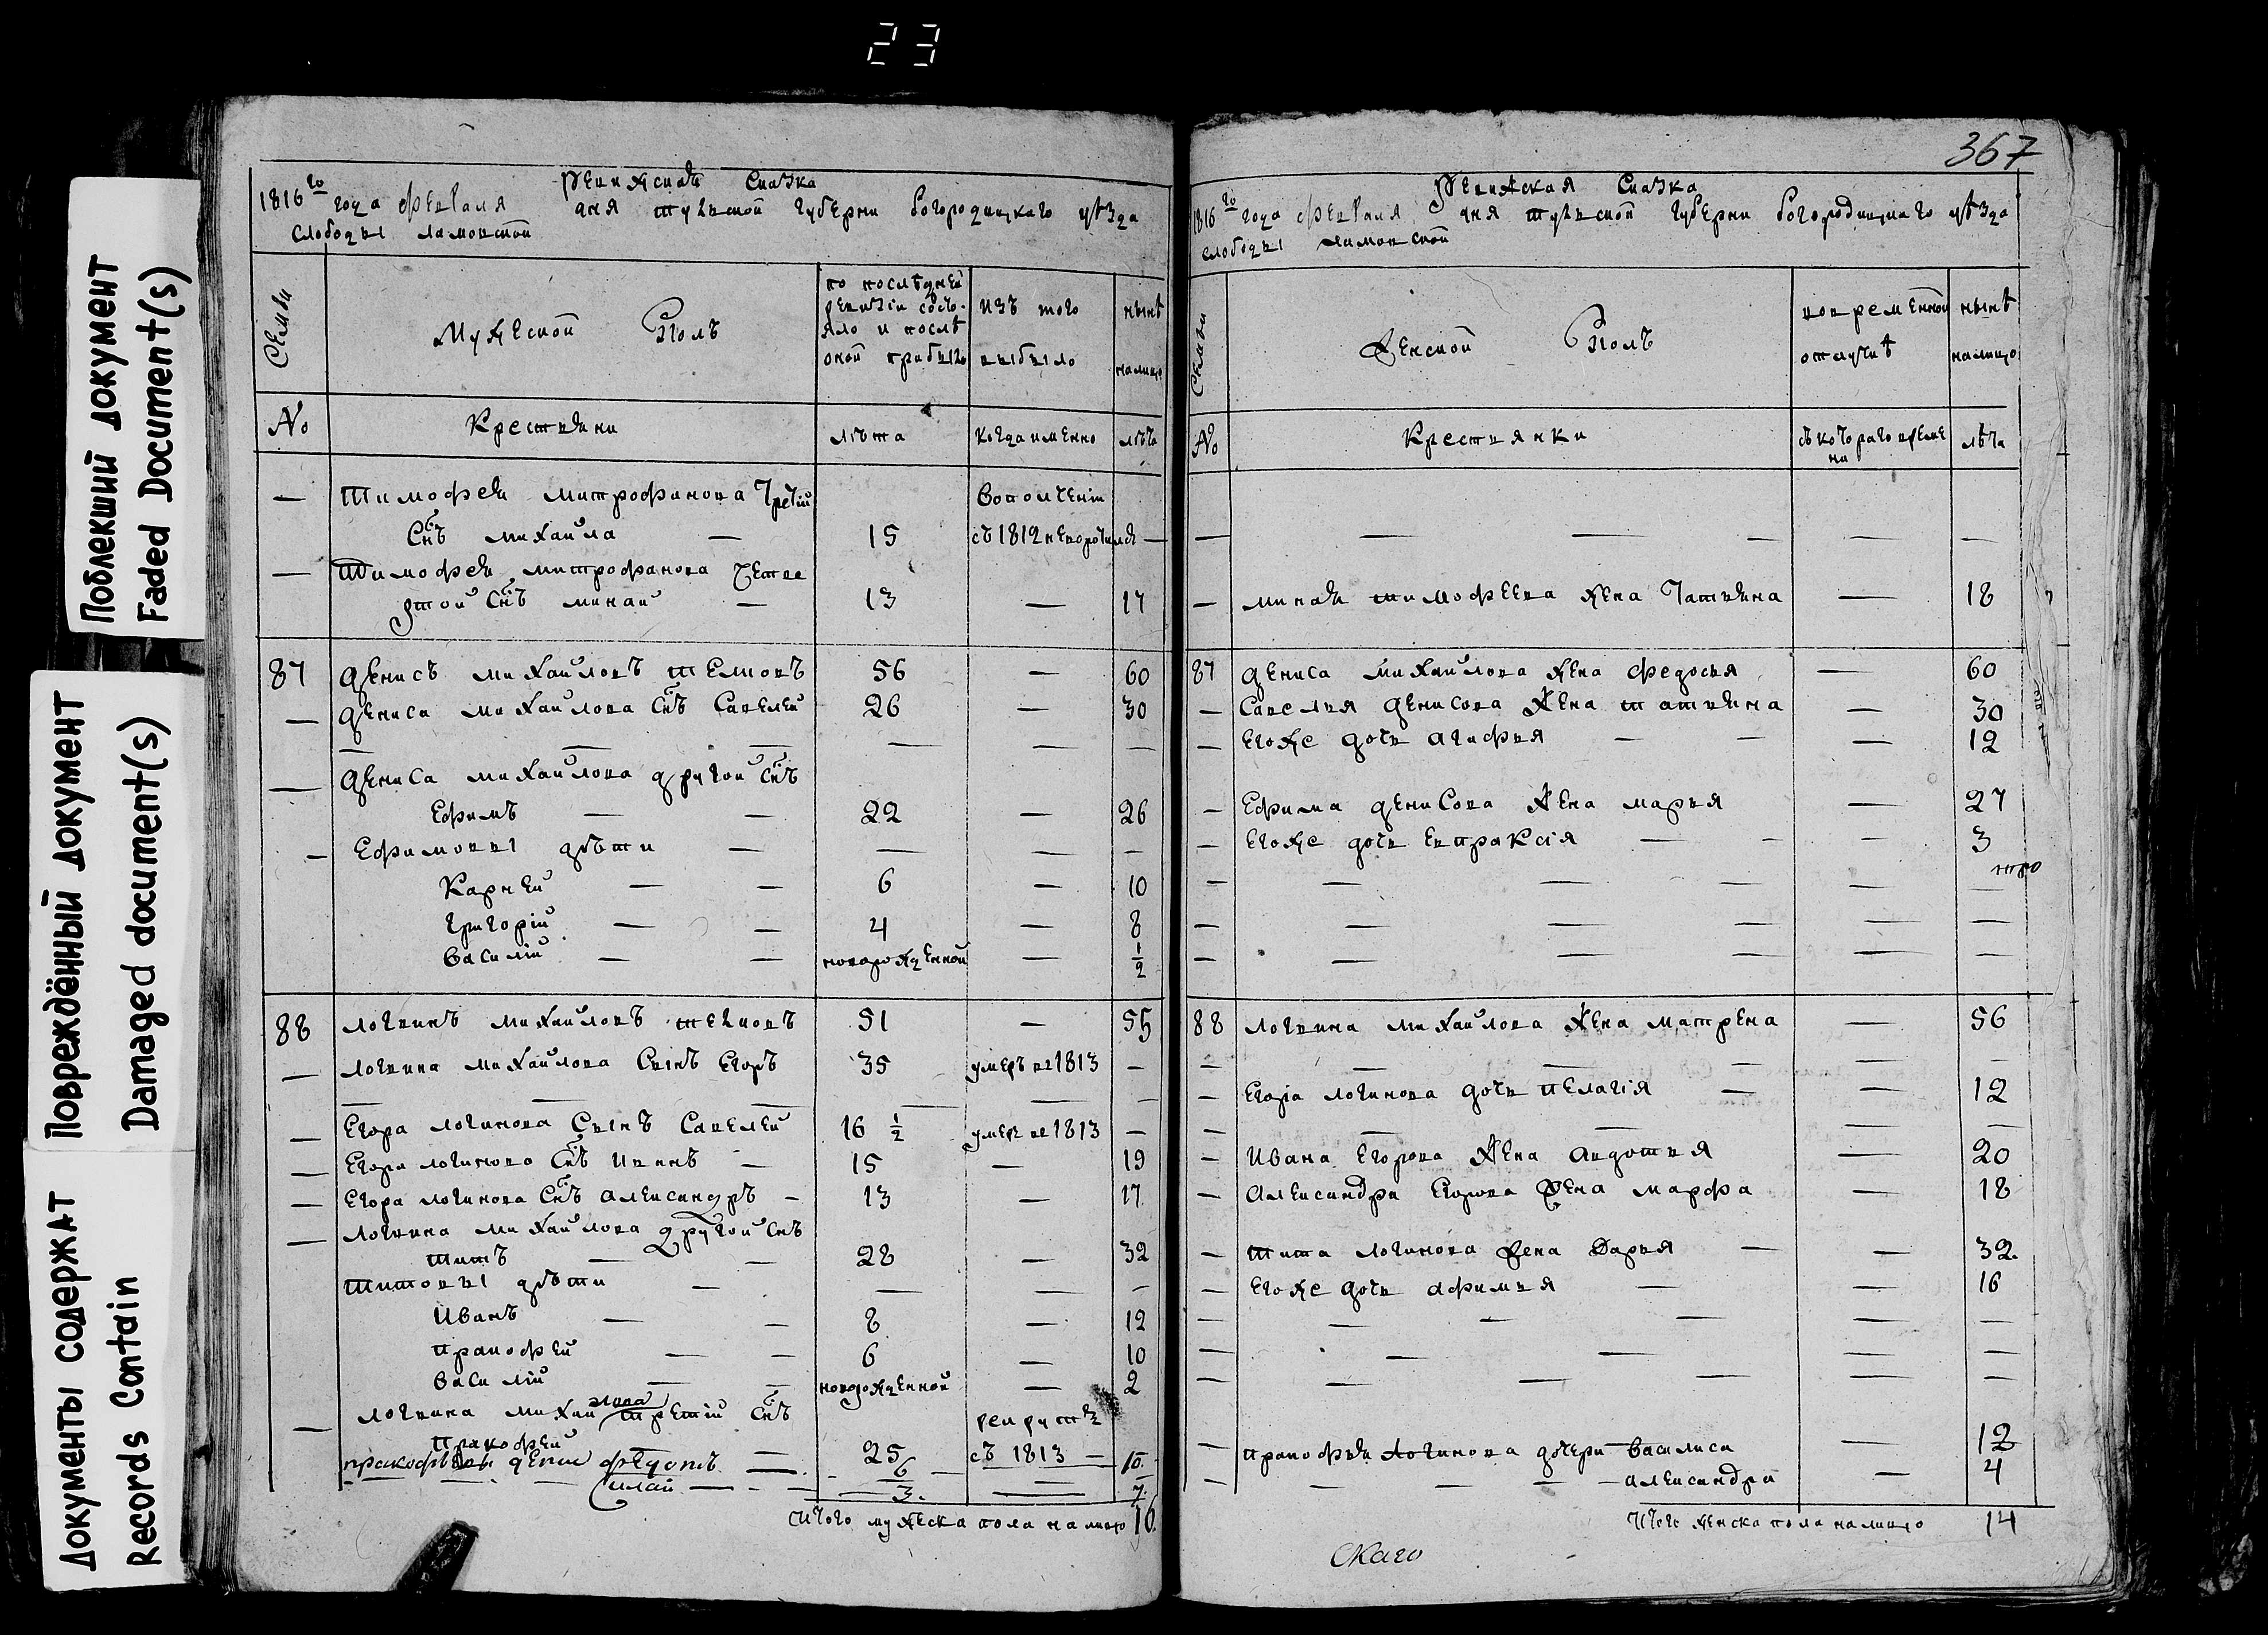 23
Поблекший документ
Faded Document(s)
Повреждённый документ
Damaged document(s)
Документы содержат
Records Contain
Ревижская Сказка
1816го года февраля дня тульской губерни богородицкаго уѣзда
слободы ламовской
Семьи
Мужеской Полъ
по послѣдней ревизіи состояло и послѣ оной прибыло
изъ того выбыло
нынѣ налицо
No
Крестьяни
лѣта
когда именно
лѣта
— Тимофея митрофанова третій воополченіи
Снъ михаила — 15 съ 1812 неворотился —
— Тимофея митрофанова четве
ртой Снъ минаи — 13 — 17
87 денисъ михаиловъ 56 — 60
— дениса михаилова Снъ Савелеи 26 — 30
— — — — — —
— дениса михаилова другои Снъ
Ефимъ — — 22 — 26
— Ефимовы дѣти — — — —
Карнеи — — 6 — 10
григоріи — — 4 — 8
василіи — — новорожденной — 1/2
88 логвинъ михаиловъ 51 — 55
— логвина михаилова Сынъ Егоръ 35 умеръ вг 1813 —
— — — — — —
— Егора логинова Сынъ Савелеи 16 1/2 умеръ вг 1813 —
— Егора логинова Снъ иванъ — 15 — 19
— Егора логинова Снъ александръ — 13 — 17
— логвина михаилова другои Снъ
титъ — — 28 — 32
титовы дѣти — — — —
иванъ — — 8 — 12
пракофеи — — 6 — 10
василіи — — новорожденной — 2
— логвина михаилова третіи Снъ рекрутѣ
пракофеи — 25 съ 1813 —
пракофьевы дети федотъ — 6 — 10
Силаи — — — 3. — 7.
Итого мужеска пола налицо 16
367
Ревижская Сказка
1816го года февраля дня тульской губерни богородицкаго уѣзда
слободы ламовской
Семьи
Женской Полъ
вовременной отлучкѣ
нынѣ налицо
No
Крестьянки
съ котораго времени
лѣта
— — — — — —
— миная тимофеева жена татьяна — 18
87 дениса михаилова жена федосья — 60
— Савелья денисова жена татьяна — 30
— Егоже дочь агафья — — — 12
— Ефима денисова жена марья — 27
— Егоже дочь евпраксія — — — 3
— — — — — —
— — — — — —
— — — — — —
88 логвина михаилова жена матрена — 56
— — — — — —
— Егора логинова дочь пелагія — — 12
— — — — —
— ивана Егорова жена авдотья — 20
— александра Егорова жена марфа — 18
— тита логинова жена Дарья — — 32.
— Егоже дочь афимья — — 16
— — — — — —
— — — — —
— — — — — —
— пракофья логинова дочери василиса — 12
— — — — — александра — 4
Итого женска пола налицо 14
скаго